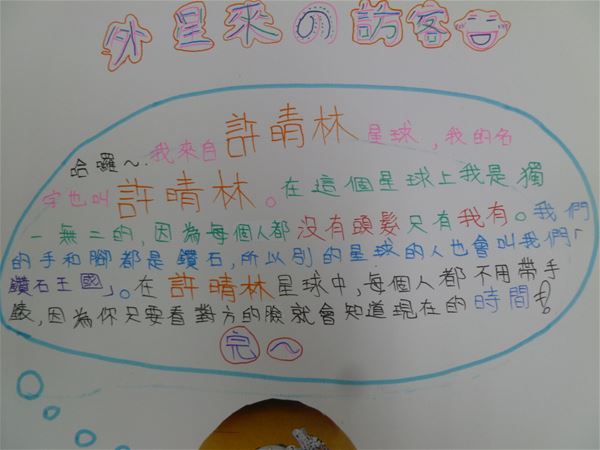 外星來の訪客
哈囉～我來自許晴林星球，我的名
字也叫許晴林。在這個星球上我是獨
一無二的，因為每個人都沒有頭髮只有我有。我們
的手和腳都是鑽石，所以別的星球的人也會叫我們「
鑽石王國」。在許晴林星球中，每個人都不用帶手
錶，因為你只要看對方的臉就會知道現在的時間！
完～